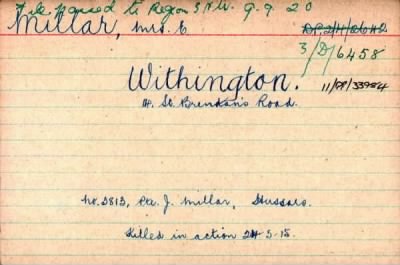 File passed to Region 3 N.W. 9.9.20
Millar, Mrs. E. DP.2/H/26642
3/D/6458
Withington. 11/PP/33984
St. Brendan's Road.
No. 2813, Pte. J. Millar, Hussars.
Killed in action 24-5-15.